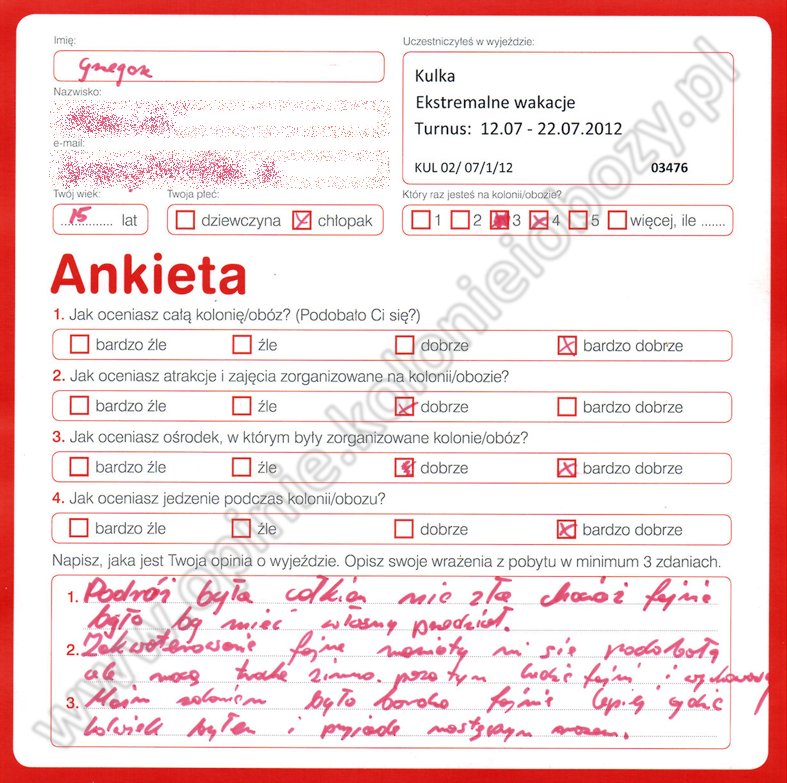 Imię:
Grzegorz
Uczestniczyłeś w wyjeździe:
Kulka
Ekstremalne wakacje
Turnus: 12.07 - 22.07.2012
KUL 02/ 07/1/12 03476
Nazwisko:
e-mail:
Twój wiek: Twoja płeć: Który raz jesteś na kolonii/obozie?
15 lat dziewczyna chłopak 1 2 3 4 5 więcej, ile .......
Ankieta
1. Jak oceniasz całą kolonię/obóz? (Podobało Ci się?)
bardzo źle źle dobrze bardzo dobrze
2. Jak oceniasz atrakcje i zajęcia zorganizowane na kolonii/obozie?
bardzo źle źle dobrze bardzo dobrze
3. Jak oceniasz ośrodek, w którym były zorganizowane kolonie/obóz?
bardzo źle źle dobrze bardzo dobrze
4. Jak oceniasz jedzenie podczas kolonii/obozu?
bardzo źle źle dobrze bardzo dobrze
Napisz, jaka jest Twoja opinia o wyjeździe. Opisz swoje wrażenia z pobytu w minimum 3 zdaniach.
1. Podróż była całkiem nie zła chociaż fajnie
było by mieć własny przedział.
2. Zakwaterowanie fajne namioty mi się podobały
ale nocą trochę zimno. poza tym ludzie fajni i wychowawcy
3. Moim zdaniem było bardzo fajnie lepiej gdzie
kolwiek byłem i przyjadę następnym razem.
www.opinie.kolonieiobozy.pl